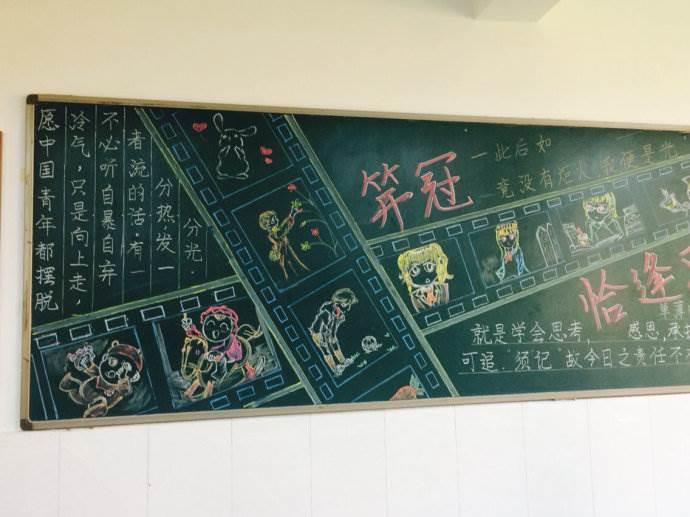 愿中国青年都摆脱
冷气，只是向上走，
不必听自暴自弃
者流的话.有一
分热发一
分光.
笄冠
一此后如
竟没有炬火 我便是光
恰逢
就是学会思考， 感恩，承
可追.须记"故今日之责任不